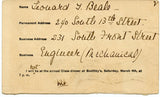 Name Leonard T Beale
Permanent Address 240 South 13th Street
Business Address 231 South Front Street
Business Engineer (Mechanical)
I will be at the annual Class dinner at Boothby's, Saturday, March 9th, at
7 p. m.